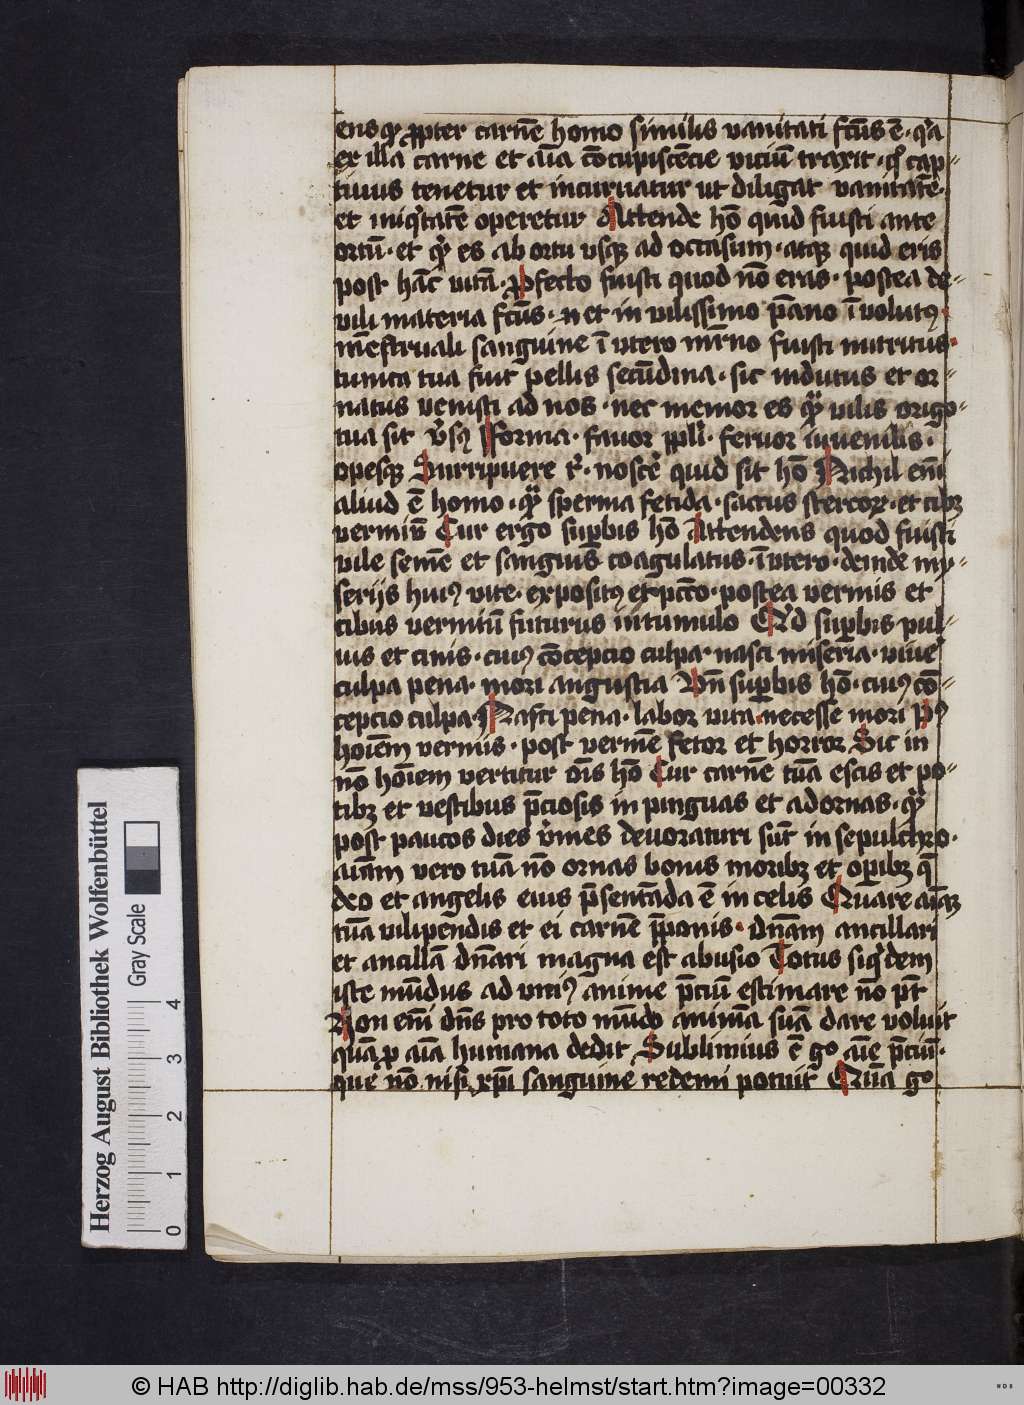 ensqꝫ ꝓpter carnē homo similis vanitati fcūs ē · qͥa
ex illa carne et aīa cōcupiscēcie viciū traxit · qͦ cap⸗
tiuus tenetur et incuruatur ut diligat vanitatē ·
et iniqͥtatē operetur Attende hō quid fuisti ante
ortū · et qͥ es ab ortu vsqꝫ ad occasum · atqꝫ quid eris
post hāc vitā · Pfecto fuisti quod nō eras · postea de⸗
vili materia fcūs · et in vilissimo pāno īvolutꝰ ·
mēstruali sanguine ī vtero mr̄no fuisti nutritus ·
tunica tua fuit pellis secūdina · sic indutus et or⸗
natus venisti ad nos · nec memor es qͣ vilis origo⸗
tua sit v̓sꝰ Forma · fauor ppl̓i · feruor iuuenilis ·
opesqꝫ Surripuere t͛ · noscē quid sit hō Nichil em̄
aliud ē homo · qͣ sperma fetida · saccus stercoꝝ · et cibꝫ
vermiū Cur ergo supbis hō Attendens quod fuisti
vile semē et sanguis coagulatus · ī vtero · deinde mi⸗
serijs huiꝰ vite · expositꝰ et pctō · postea vermis et
cibus vermiū futurus in tumulo Qͥd supbis pul⸗
uis et cinis · cuiꝰ cōcepcio culpa · nasci miseria · viuē
culpa pena · mori angustia Vn̄ supbis hō · cuiꝰ cō⸗
cepcio culpa · Nasci pena · labor vita · necesse mori Pꝰ
hoīem vermis · post vermē fetor et horror Sic in
nō hoīem vertitur oīs hō Cur carnē tuā escis et po⸗
tibꝫ et vestibus p̄ciosis inpinguas et adornas · qͣ
post paucos dies v̓mes deuoraturi sūt in sepulchro ·
aīam vero tuā nō ornas bonis moribꝫ et opibꝫ q̄
deo et angelis eius p̄sentāda ē in celis Quare aīaꝫ
tuā vilipēdis et ei carnē p̄ponis · dn̄am ancillari
et ancillā dn̄ari magna est abusio Totus siqͥdem
iste mūdus ad vniꝰ anime p̄ciū estimare nō pt̄
Non em̄ dn̄s pro toto mūdo animā suā dare voluit
quā ꝓ aīa humana dedit Sublimius ē go aīe p̄ciū ·
que nō nisi xp̄i sanguine redemi potuit Quā go
Herzog August Bibliothek Wolfenbüttel
Gray Scale
0 1 2 3 4
© HAB http://diglib.hab.de/mss/953-helmst/start.htm?image=00332